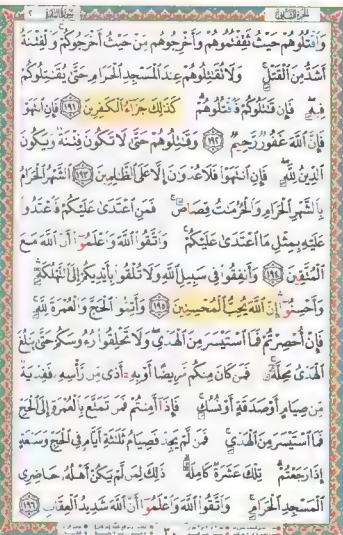 الجزء الثاني
سورة البقرة ٢
وَاقْتُلُوهُمْ حَيْثُ ثَقِفْتُمُوهُمْ وَأَخْرِجُوهُم مِّنْ حَيْثُ أَخْرَجُوكُمْ وَالْفِتْنَةُ
أَشَدُّ مِنَ الْقَتْلِ وَلَا تُقَٰتِلُوهُمْ عِندَ الْمَسْجِدِ الْحَرَامِ حَتَّىٰ يُقَٰتِلُوكُمْ
فِيهِ فَإِن قَٰتَلُوكُمْ فَاقْتُلُوهُمْ كَذَٰلِكَ جَزَاءُ الْكَٰفِرِينَ ﴿١٩١﴾ فَإِنِ انتَهَوْا
فَإِنَّ اللَّهَ غَفُورٌ رَّحِيمٌ ﴿١٩٢﴾ وَقَٰتِلُوهُمْ حَتَّىٰ لَا تَكُونَ فِتْنَةٌ وَيَكُونَ
الدِّينُ لِلَّهِ فَإِنِ انتَهَوْا فَلَا عُدْوَٰنَ إِلَّا عَلَى الظَّٰلِمِينَ ﴿١٩٣﴾ الشَّهْرُ الْحَرَامُ
بِالشَّهْرِ الْحَرَامِ وَالْحُرُمَٰتُ قِصَاصٌ فَمَنِ اعْتَدَىٰ عَلَيْكُمْ فَاعْتَدُوا
عَلَيْهِ بِمِثْلِ مَا اعْتَدَىٰ عَلَيْكُمْ وَاتَّقُوا اللَّهَ وَاعْلَمُوا أَنَّ اللَّهَ مَعَ
الْمُتَّقِينَ ﴿١٩٤﴾ وَأَنفِقُوا فِي سَبِيلِ اللَّهِ وَلَا تُلْقُوا بِأَيْدِيكُمْ إِلَى التَّهْلُكَةِ
وَأَحْسِنُوا إِنَّ اللَّهَ يُحِبُّ الْمُحْسِنِينَ ﴿١٩٥﴾ وَأَتِمُّوا الْحَجَّ وَالْعُمْرَةَ لِلَّهِ
فَإِنْ أُحْصِرْتُمْ فَمَا اسْتَيْسَرَ مِنَ الْهَدْيِ وَلَا تَحْلِقُوا رُءُوسَكُمْ حَتَّىٰ يَبْلُغَ
الْهَدْيُ مَحِلَّهُ فَمَن كَانَ مِنكُم مَّرِيضًا أَوْ بِهِ أَذًى مِّن رَّأْسِهِ فَفِدْيَةٌ
مِّن صِيَامٍ أَوْ صَدَقَةٍ أَوْ نُسُكٍ فَإِذَا أَمِنتُمْ فَمَن تَمَتَّعَ بِالْعُمْرَةِ إِلَى الْحَجِّ
فَمَا اسْتَيْسَرَ مِنَ الْهَدْيِ فَمَن لَّمْ يَجِدْ فَصِيَامُ ثَلَٰثَةِ أَيَّامٍ فِي الْحَجِّ وَسَبْعَةٍ
إِذَا رَجَعْتُمْ تِلْكَ عَشَرَةٌ كَامِلَةٌ ذَٰلِكَ لِمَن لَّمْ يَكُنْ أَهْلُهُ حَاضِرِي
الْمَسْجِدِ الْحَرَامِ وَاتَّقُوا اللَّهَ وَاعْلَمُوا أَنَّ اللَّهَ شَدِيدُ الْعِقَابِ ﴿١٩٦﴾
٣٠